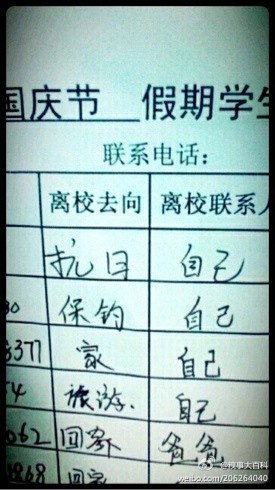 国庆节 假期学生
联系电话：
离校去向 离校联系人
抗日 自己
30 保钓 自己
3377 家 自己
54 旅游. 自己
062 回家 爸爸
4868 回家
@糗事大百科
weibo.com/206264040